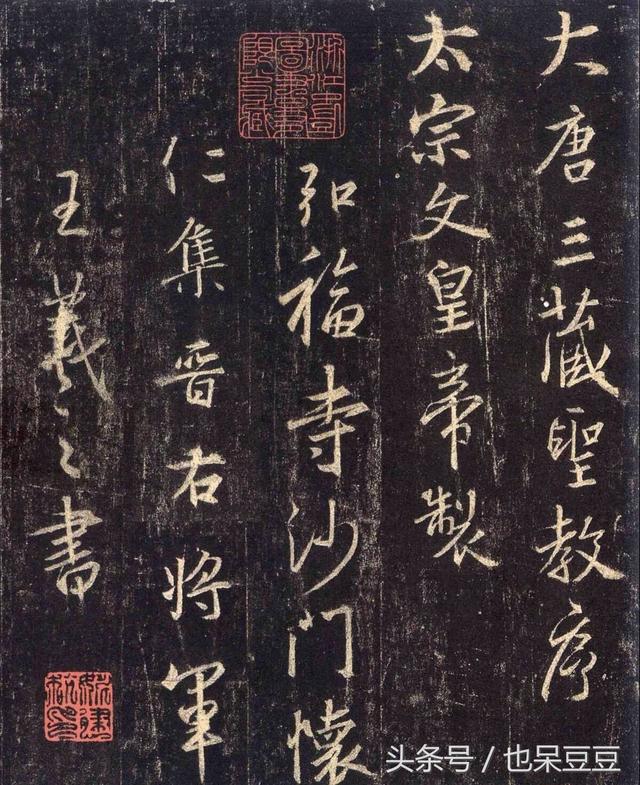 大唐三藏聖教序
太宗文皇帝製
弘福寺沙門懷
仁集晉右將軍
王羲之書
头条号 / 也呆豆豆